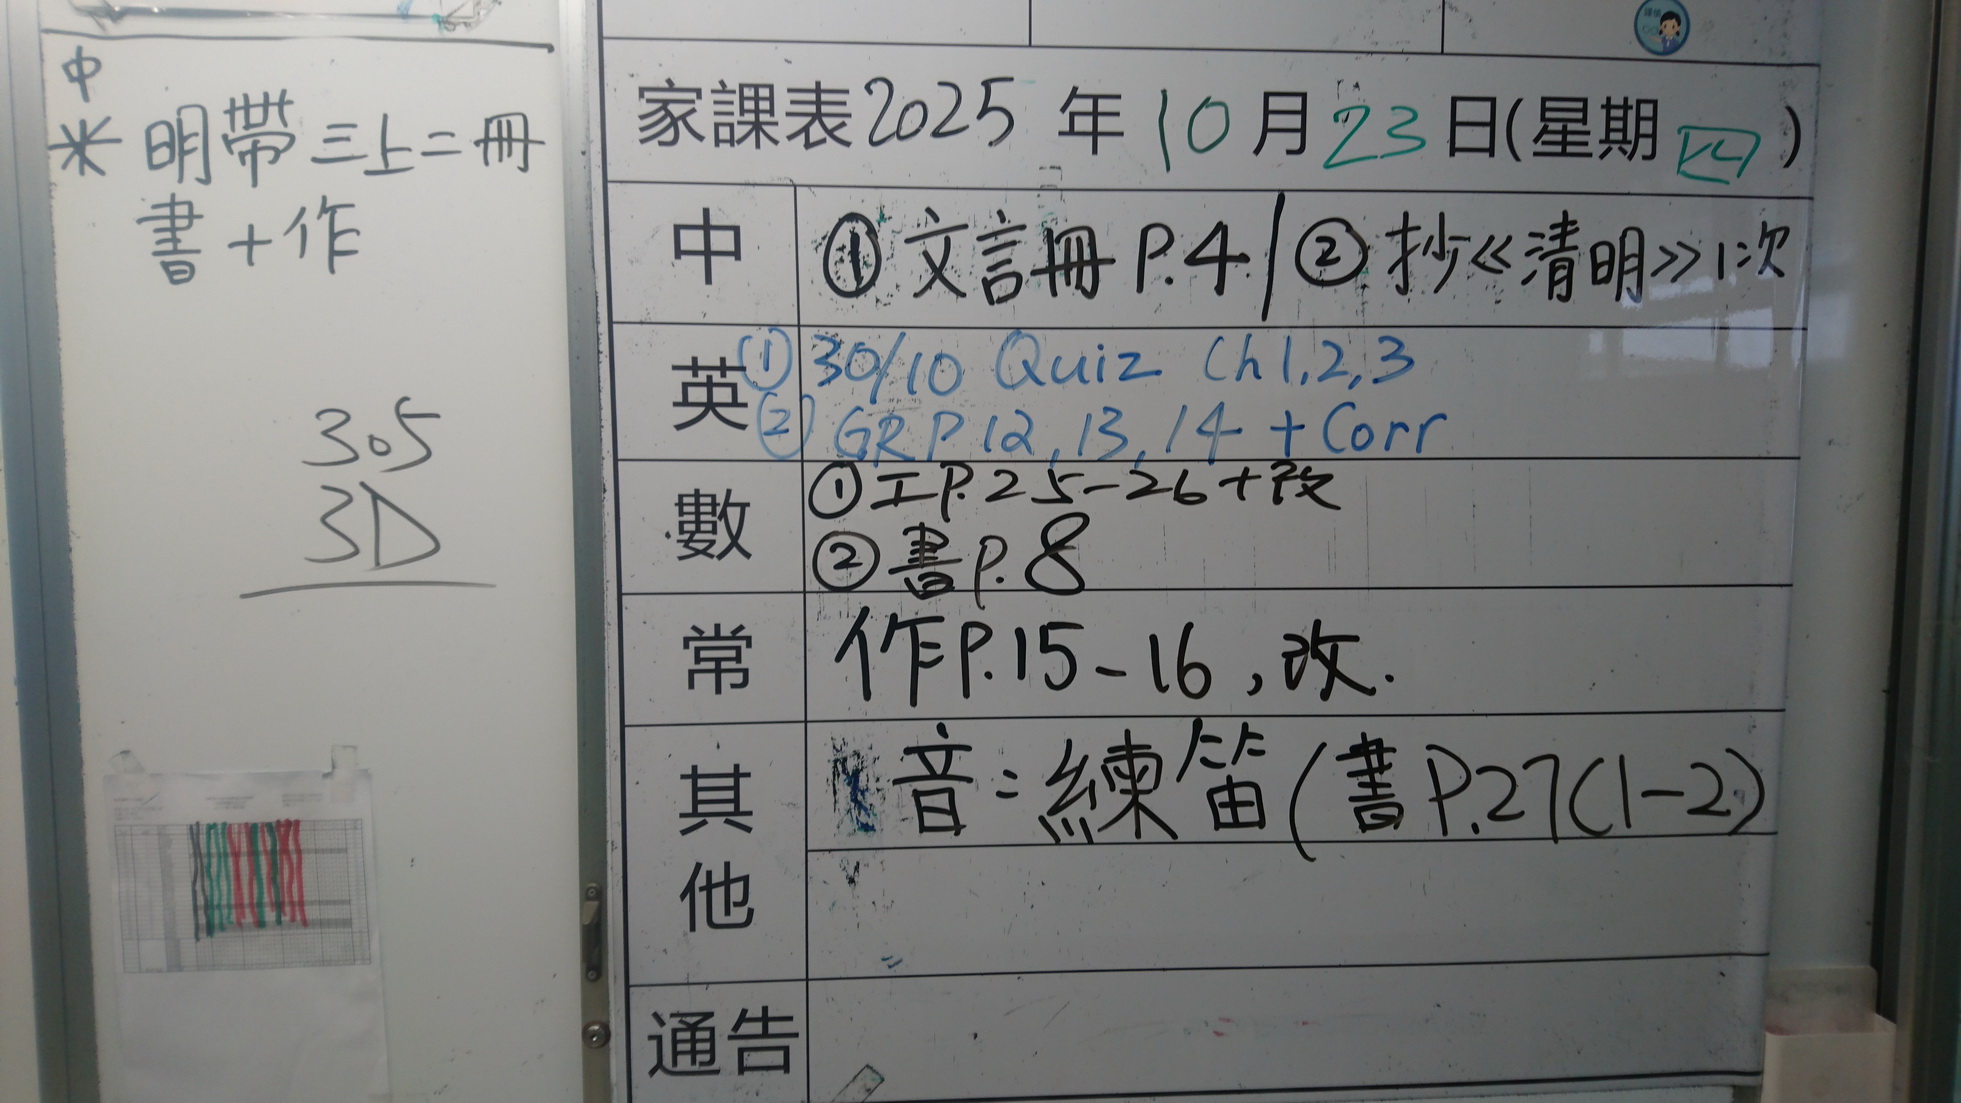 中
米 明帶三上二冊
書+作
305
3D
家課表2025年10月23日(星期四)
中
①文言冊P.4/②抄《清明》1次
英
①30/10 Quiz Ch 1,2,3
②GR P12,13,14 + Corr
數
①工P.25-26+改
②書P.8
常
作P.15-16,改.
其他
音:練笛(書P.27(1-2)
通告